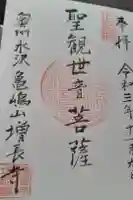 奉拝 令和三年十一月
聖観世音菩薩
水沢 亀嶋山 増長寺